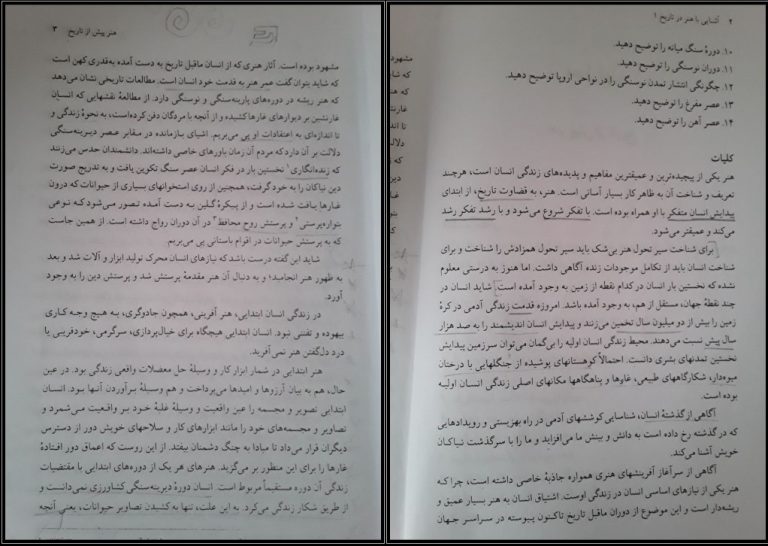 ۲ آشنایی با هنر در تاریخ ۱
۱۰. دورهٔ سنگ میانه را توضیح دهید.
۱۱. دوران نوسنگی را توضیح دهید.
۱۲. چگونگی انتشار تمدن نوسنگی را در نواحی اروپا توضیح دهید.
۱۳. عصر مفرغ را توضیح دهید.
۱۴. عصر آهن را توضیح دهید.
کلیات
هنر یکی از پیچیده‌ترین و عمیقترین مفاهیم و پدیده‌های زندگی انسان است، هرچند
تعریف و شناخت آن به ظاهر کار بسیار آسانی است. هنر، به قضاوت تاریخ، از ابتدای
پیدایش انسان متفکر با او همراه بوده است. با تفکر شروع می‌شود و با رشد تفکر رشد
می‌کند و عمیقتر می‌شود.
برای شناخت سیر تحول هنر بی‌شک باید سیر تحول همزادش را شناخت و برای
شناخت انسان باید از تکامل موجودات زنده آگاهی داشت. اما هنوز به درستی معلوم
نشده که نخستین بار انسان در کدام نقطه از زمین به وجود آمده است. شاید انسان در
چند نقطهٔ جهان، مستقل از هم، به وجود آمده باشد. امروزه قدمت زندگی آدمی در کرهٔ
زمین را بیش از دو میلیون سال تخمین می‌زنند و پیدایش انسان اندیشمند را به صد هزار
سال پیش نسبت می‌دهند. محیط زندگی انسان اولیه را بی‌گمان می‌توان سرزمین پیدایش
نخستین تمدنهای بشری دانست. احتمالاً کوهستانهای پوشیده از جنگلهایی با درختان
میوه‌دار، شکارگاههای طبیعی، غارها و پناهگاهها مکانهای اصلی زندگی انسان اولیه
بوده است.
آگاهی از گذشتهٔ انسان، شناسایی کوششهای آدمی در راه بهزیستی و رویدادهایی
که در گذشته رخ داده است به دانش و بینش ما می‌افزاید و ما را با سرگذشت نیاکان
خویش آشنا می‌کند.
آگاهی از سرآغاز آفرینشهای هنری همواره جاذبهٔ خاصی داشته است، چرا که
هنر یکی از نیازهای اساسی انسان در زندگی اوست. اشتیاق انسان به هنر بسیار عمیق و
ریشه‌دار است و این موضوع از دوران ماقبل تاریخ تاکنون پیوسته در سراسر جهان
هنر پیش از تاریخ ۳
مشهود بوده است. آثار هنری که از انسان ماقبل تاریخ به دست آمده به‌قدری کهن است
که شاید بتوان گفت عمر هنر به قدمت خود انسان است. مطالعات تاریخی نشان می‌دهد
که هنر ریشه در دوره‌های پارینه‌سنگی و نوسنگی دارد. از مطالعهٔ نقشهایی که انسان
غارنشین بر دیوارهای غارها کشیده و از آنچه با مردگان دفن کرده‌است، به نحوهٔ زندگی و
تا اندازه‌ای به اعتقادات او پی می‌بریم. اشیای بازمانده در مقابر عصر دیرینه‌سنگی
دلالت بر آن دارد که مردم آن زمان باورهای خاصی داشته‌اند. دانشمندان حدس می‌زنند
که زنده‌انگاری۱ نخستین بار در فکر انسان عصر سنگ تکوین یافت و به تدریج صورت
دین نیاکان را به خود گرفت، همچنین از روی استخوانهای بسیاری از حیوانات که درون
غارها یافت شده است و از پیکرهٔ گلین به دست آمده تصور می‌شود که نوعی
بتواره‌پرستی۲ و پرستش روح محافظ۳ در آن دوران رواج داشته است. از همین جاست
که به پرستش حیوانات در اقوام باستانی پی می‌بریم.
شاید این گفته درست باشد که نیازهای انسان محرک تولید ابزار و آلات شد و بعد
به ظهور هنر انجامید؛ و به دنبال آن هنر مقدمهٔ پرستش شد و پرستش دین را به وجود
آورد.
در زندگی انسان ابتدایی، هنر آفرینی، همچون جادوگری، به هیچ وجه کاری
بیهوده و تفننی نبود. انسان ابتدایی هیچگاه برای خیال‌پردازی، سرگرمی، خودفریبی یا
درد دل‌گفتن هنر نمی‌آفرید.
هنر ابتدایی در شمار ابزار کار و وسیلهٔ حل معضلات واقعی زندگی بود. در عین
حال، هم به بیان آرزوها و امیدها می‌پرداخت و هم وسیلهٔ برآوردن آنها بود. انسان
ابتدایی تصویر و مجسمه را عین واقعیت و وسیلهٔ غلبهٔ خود بر واقعیت می‌شمرد و
تصاویر و مجسمه‌های خود را مانند ابزارهای کار و سلاحهای خویش دور از دسترس
دیگران قرار می‌داد تا مبادا به چنگ دشمنان بیفتد. از این روست که اعماق دور افتادهٔ
غارها را برای این منظور بر می‌گزید. هنرهای هر یک از دوره‌های ابتدایی با مقتضیات
زندگی آن دوره مستقیماً مربوط است. انسان دورهٔ دیرینه‌سنگی کشاورزی نمی‌دانست و
از طریق شکار زندگی می‌کرد. به این علت، تنها به کشیدن تصاویر حیوانات، یعنی آنچه